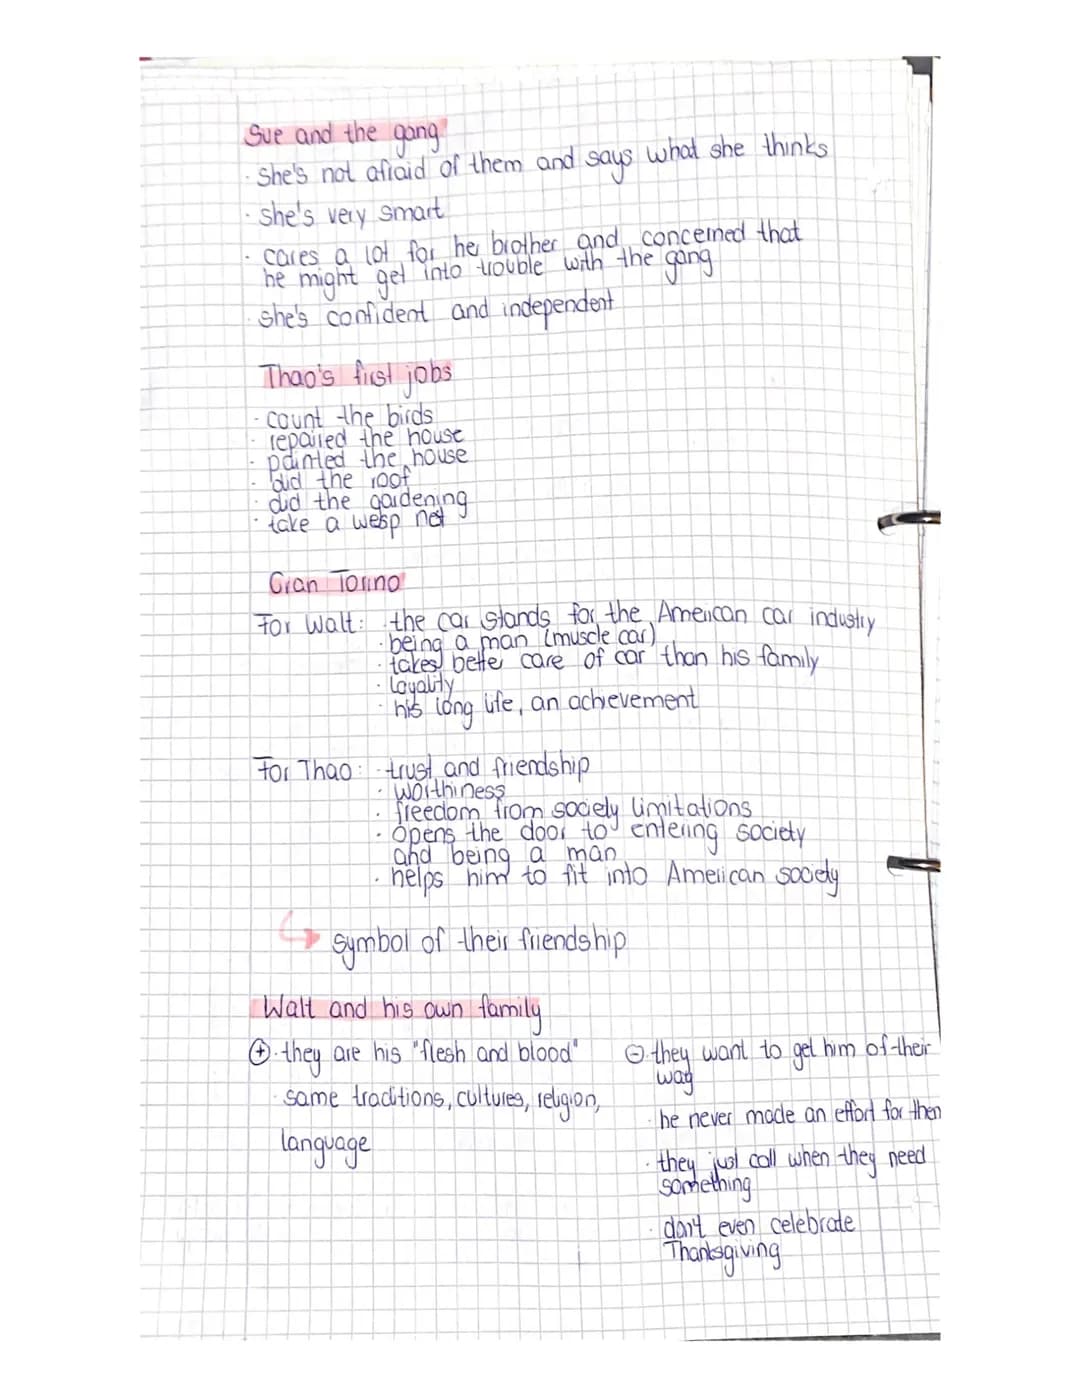 Sue and the gang
· She's not afraid of them and says what she thinks
· she's very smart
· cares a lot for her brother and concerned that
he might get into trouble with the gang
· she's confident and independent
Thao's first jobs
· count the birds
· repaired the house
· painted the house
· did the roof
· did the gardening
· take a wesp nest
Gran Torino
For Walt: · the car stands for the American car industry
· being a man (muscle car)
· takes better care of car than his family
· loyality
· his long life, an achievement
For Thao: · trust and friendship
· worthiness
· freedom from society limitations
· opens the door to entering society
and being a man
· helps him to fit into American society
↳ symbol of their friendship
Walt and his own family
⊕ · they are his "flesh and blood"
· same traditions, cultures, religion,
language
⊖ they want to get him of their
way
· he never made an effort for them
· they just call when they need
something
· don't even celebrate
Thanksgiving